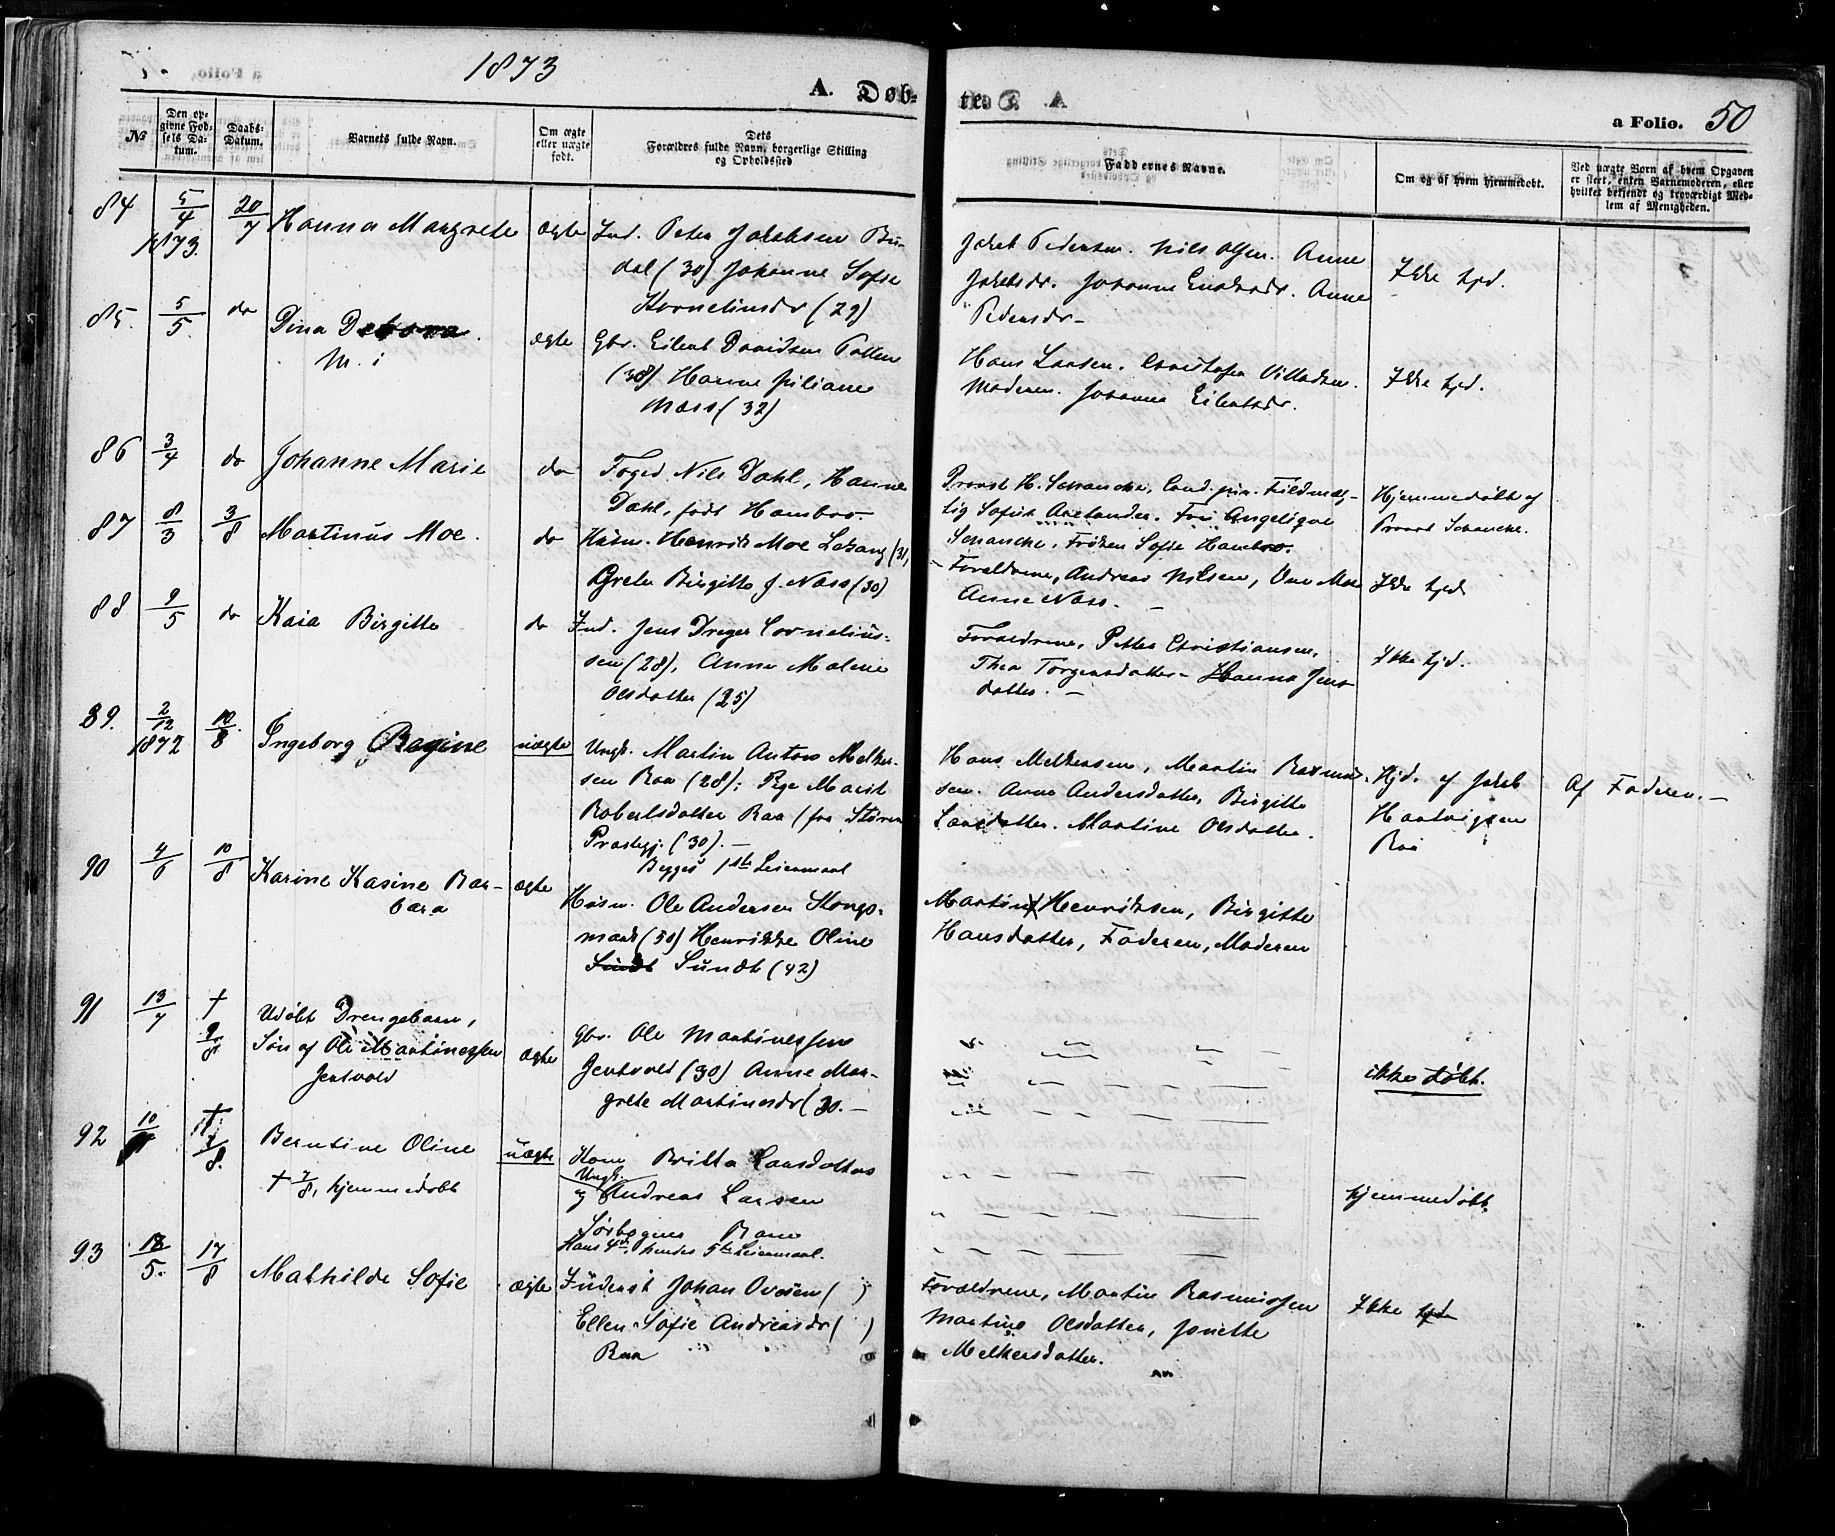 1873
A. Døb-
te.
a Folio. 50
№
Den op-
givne Fød-
sels Da-
tum.
Daabs-
Datum.
Barnets fulde Navn.
Om ægte
eller uægte
født.
Dets
Forældres fulde Navn, borgerlige Stilling
og Opholdssted
Faddernes Navne.
Om og af hvem hjemmedøbt.
Ved uægte Børn af hvem Opgaven
er skeet, enten Barnemoderen, eller
hvilket bekjendt og troværdigt Med-
lem af Menigheden.
84
5/4 1873.
20/7
Hanna Margrete
ægte
Ind. Peter Jakobsen Bu-
dal (30) Johanne Sofie
Kornelinsdr (29)
Jakob Pedersen. Nils Olsen. Anne
Jakobsdr. Johanne Anne
Pedersdr
Ikke hjd.
85.
5/5.
do
Dina Debora
M. i
ægte
Gbr. Eilert Davidsen
(38) Hanne Juliane
Næss (32)
Hans Larsen. Christofer Villadsen.
Moderen. Johanna Eilertsdr.
Ikke hjd.
86
3/4
do
Johanne Marie
do
Foged Nils Dahl, Hanne
Dahl, født Hambro.
Provst H. Schancke, Cand. jur. Fuldmæg-
tig Sofus Arctander. Fru Angelique
Schancke, Frøken Sofie Hambro.
Hjemmedøbt af
Provst Schancke.
87
8/3
3/8
Martinus Moe.
do
Husm. Henrik Moe (31,
Grete Birgitte J. Næss (30)
Forældrene, Andreas Nilsen, Moe
Anne Næss.
Ikke hjd
88
9/5
do
Kaia Birgitte
do
Ind. Jens Dreyer Cornelius-
sen (28), Anne Malene
Olsdatter (25)
Forældrene, Petter Christiansen,
Thea Torgersdatter - Hanna Jens-
datter. -
Ikke hjd.
89.
2/12 1872
10/8
Ingeborg Regine
uægte
Ungk. Martin Anton Melker-
sen Raa (28); Pige Marit
Robertsdatter Raa (fra Støren
Præstegj. (30). -
Begges 1ste Leiermaal
Hans Melkersen, Martin Rasmus-
sen. Anne Andersdatter, Birgitte
Larsdatter. Martine Olsdatter.
Hjd. af Jakob
Hartvigsen
Raa
Af Faderen. -
90
4/6
10/8
Karine Kasine Bar-
bara
ægte
Husm. Ole Andersen Stangs-
mark (50) Henrikke Oline
Sundt (42)
Martin Henriksen, Birgitte
Hansdatter, Faderen, Moderen
91
13/7
† 9/8
Udøbt Drengebarn,
Søn af Ole Martinessen
Jentvold
ægte
Gbr. Ole Martinessen
Jentvold (30) Anne Mar-
grete Martinusdr (30. -
ikke døbt.
92
† 7/8.
Berntine Oline
† 7/8, hjemmedøbt
uægte
Kone Britta Larsdatter
Ungk.
og Andreas Larsen
Hans 4de, hendes 5te Leiermaal.
hjemmedøbt.
93
18/5.
17/8
Mathilde Sofie
ægte
Inderst Johan Ovesen ( )
Ellen Sofie Andreasdr ( )
Raa
Forældrene, Martin Rasmussen
Martine Olsdatter, Jonette
Melkersdatter.
Ikke hjd